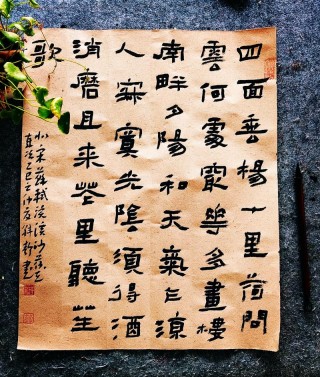 四面垂楊十里荷問
雲何處最華多畫樓
南畔夕陽和天氣乍涼
人寂寞光陰須得酒
消磨且來花里聽笙
歌
北宋蘇軾浣溪沙荷花
乙巳書